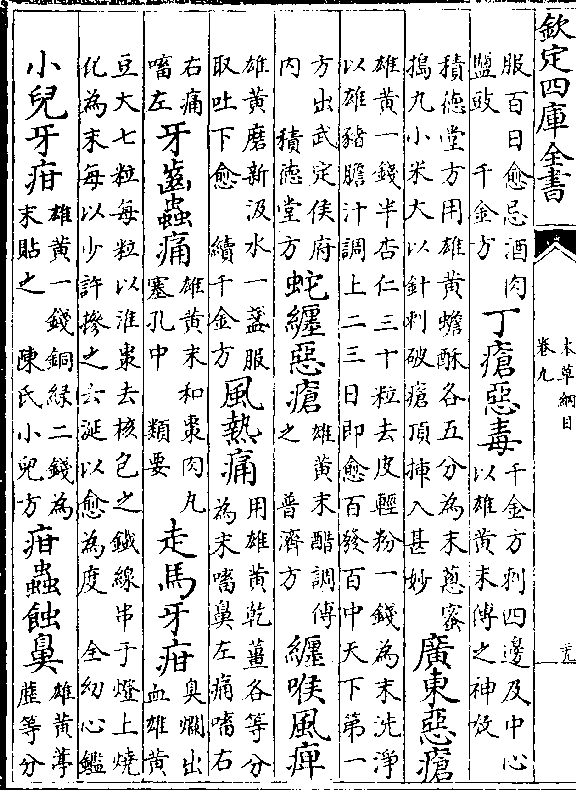 欽定四庫全書
本草綱目
卷九
服百日愈忌酒肉
鹽豉　千金方
丁瘡惡毒
千金方刺四邊及中心
以雄黃末傅之神效
積德堂方用雄黃蟾酥各五分為末蔥蜜
搗丸小米大以針刺破瘡頂揷入甚妙
廣東惡瘡
雄黃一錢半杏仁三十粒去皮輕粉一錢為末洗淨
以雄豬膽汁調上二三日即愈百發百中天下第一
方出武定侯府
內　積德堂方
蛇纏惡瘡
雄黃末醋調傅
之　普濟方
纏喉風痺
雄黃磨新汲水一盞服
取吐下愈　續千金方
風熱痛
用雄黃乾薑各等分
為末㗜鼻左痛㗜右
右痛
㗜左
牙齒蟲痛
雄黃末和棗肉丸
塞孔中　類要
走馬牙疳
臭爛出
血雄黃
豆大七粒每粒以淮棗去核包之鐵線串于燈上燒
化為末每以少許摻之去涎以愈為度　全幼心鑑
小兒牙疳
雄黃一錢銅綠二錢為
末貼之　陳氏小兒方
疳蟲蝕鼻
雄黃葶
藶等分